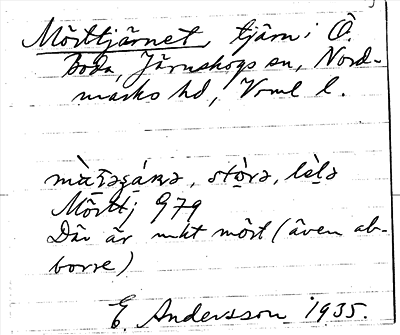 Mörttjärnet, tjärn i Ö.
Boda, Järnskogs sn, Nord-
marks hd, Vrml l.
stò̩rə, lèlə
Mörttj G79
Där är mkt mört (även ab-
borre)
E. Andersson 1935.